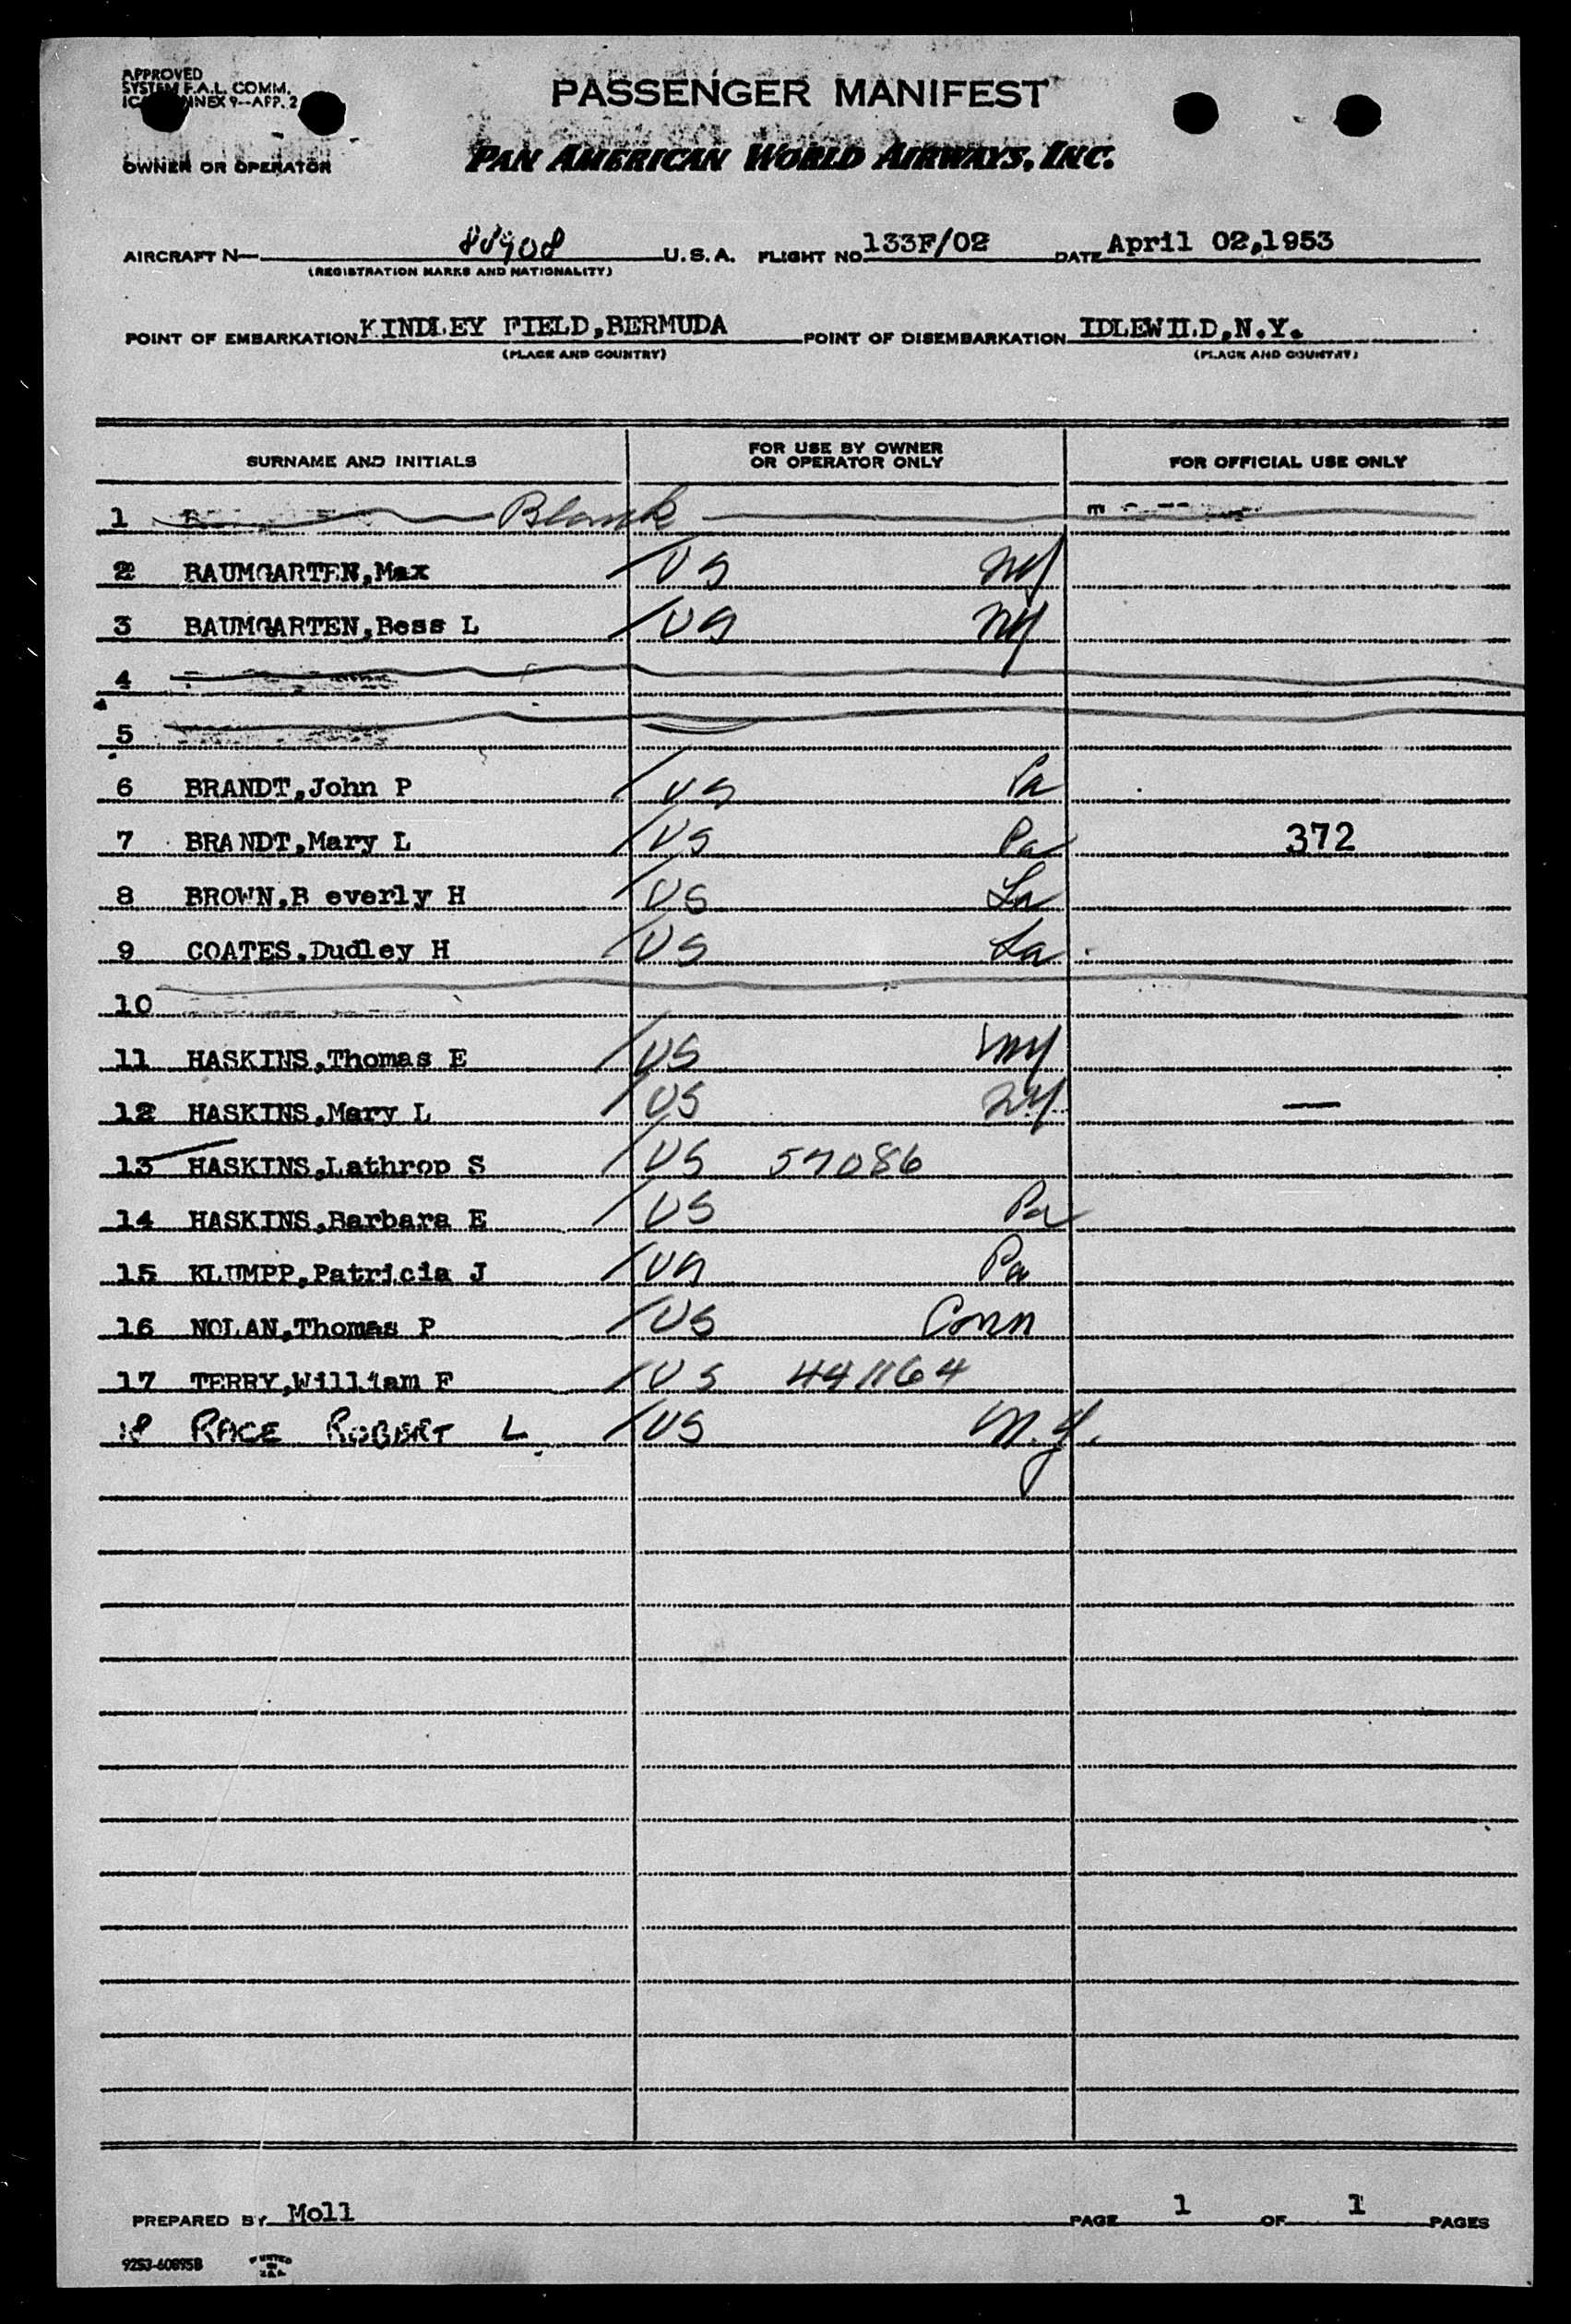 APPROVED
SYSTEM F.A.L. COMM.
ANNEX 9--APP. 2
PASSENGER MANIFEST
OWNER OR OPERATOR PAN AMERICAN WORLD AIRWAYS, INC.
AIRCRAFT N— 88908 U.S.A. FLIGHT NO. 133F/02 DATE April 02,1953
(REGISTRATION MARKS AND NATIONALITY)
POINT OF EMBARKATION KINDLEY FIELD,BERMUDA POINT OF DISEMBARKATION IDLEWILD,N.Y.
(PLACE AND COUNTRY) (PLACE AND COUNTRY)
SURNAME AND INITIALS FOR USE BY OWNER OR OPERATOR ONLY FOR OFFICIAL USE ONLY
1 Blank
2 BAUMGARTEN,Max US NY
3 BAUMGARTEN,Bess L US NY
4
5
6 BRANDT,John P US Pa
7 BRANDT,Mary L US Pa 372
8 BROWN,B everly H US La
9 COATES,Dudley H US La
10
11 HASKINS,Thomas E US NY
12 HASKINS,Mary L US NY —
13 HASKINS,Lathrop S US 57086
14 HASKINS,Barbara E US Pa
15 KLUMPP,Patricia J US Pa
16 NOLAN,Thomas P US Conn
17 TERRY,William F US 441164
18 RACE ROBERT L US N.Y.
PREPARED BY Moll PAGE 1 OF 1 PAGES
9253-60895B PRINTED IN U.S.A.